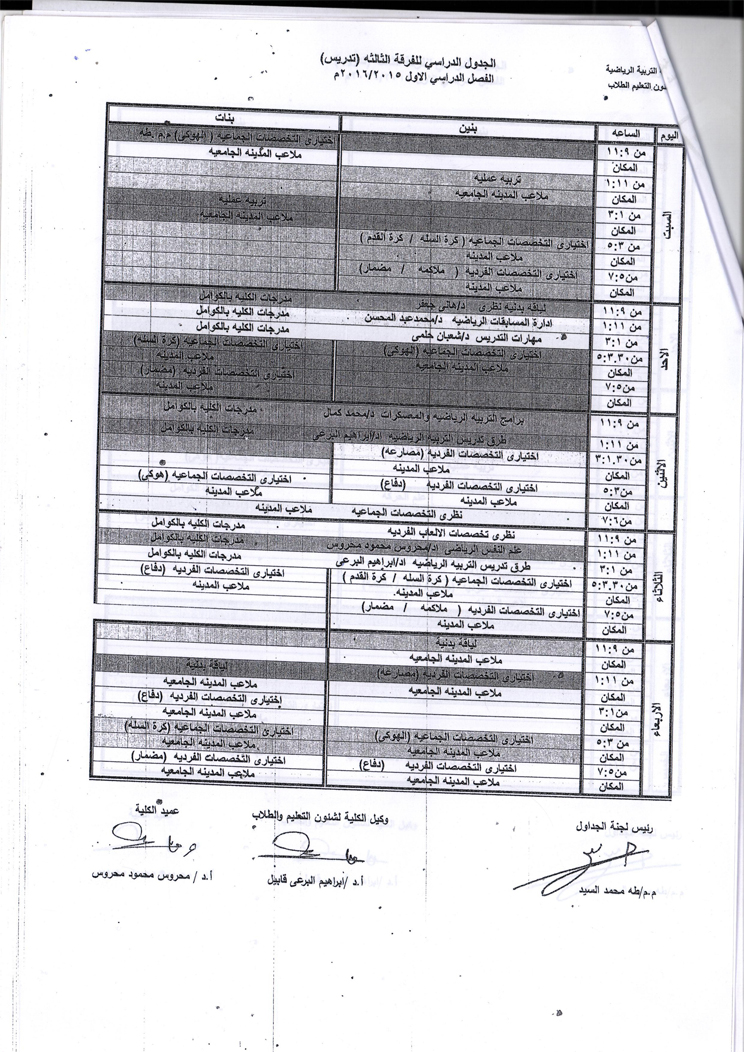 الجدول الدراسي للفرقة الثالثه (تدريس)
الفصل الدراسي الاول ٢٠١٦/٢٠١٥م
التربية الرياضية
ون التعليم الطلاب
اليوم الساعه بنين بنات
السبت
من ١١:٩ اختيارى التخصصات الجماعيه ( الهوكى) م.م .طه
المكان ملاعب المدينه الجامعيه
من ١:١١ تربيه عمليه
المكان ملاعب المدينه الجامعيه
من ٣:١ تربيه عمليه
المكان ملاعب المدينه الجامعيه
من ٥:٣ اختيارى التخصصات الجماعيه ( كرة السله / كرة القدم )
المكان ملاعب المدينه
من ٧:٥ اختيارى التخصصات الفرديه ( ملاكمه / مضمار)
المكان ملاعب المدينه
الاحد
من ١١:٩ لياقة بدنية نظرى د/هانى جعفر مدرجات الكليه بالكوامل
من ١:١١ ادارة المسابقات الرياضيه د/محمدعبد المحسن مدرجات الكليه بالكوامل
من ٣:١ مهارات التدريس د/شعبان حلمى مدرجات الكليه بالكوامل
من ٥:٣.٣٠ اختيارى التخصصات الجماعيه (الهوكى) اختيارى التخصصات الجماعيه (كرة السله)
المكان ملاعب المدينه الجامعيه ملاعب المدينه
من ٧:٥ اختيارى التخصصات الفرديه (مضمار)
المكان ملاعب المدينه
الاثنين
من ١١:٩ برامج التربيه الرياضيه والمعسكرات د/محمد كمال مدرجات الكليه بالكوامل
من ١:١١ طرق تدريس التربيه الرياضيه اد/ابراهيم البرعى مدرجات الكليه بالكوامل
من ٣:١.٣٠ اختيارى التخصصات الفرديه (مصارعه)
المكان ملاعب المدينه
من ٥:٣ اختيارى التخصصات الفرديه (دفاع) اختيارى التخصصات الجماعيه (هوكى)
المكان ملاعب المدينه ملاعب المدينه
من ٧:٦ نظرى التخصصات الجماعيه ملاعب المدينه
الثلاثاء
من ١١:٩ نظرى تخصصات الالعاب الفرديه مدرجات الكليه بالكوامل
من ١:١١ علم النفس الرياضى اد/محروس محمود محروس مدرجات الكليه بالكوامل
من ٣:١ طرق تدريس التربيه الرياضيه اد/ابراهيم البرعى مدرجات الكليه بالكوامل
من ٥:٣.٣٠ اختيارى التخصصات الجماعيه ( كرة السله / كرة القدم ) اختيارى التخصصات الفرديه (دفاع)
المكان ملاعب المدينه. ملاعب المدينه
من ٧:٥ اختيارى التخصصات الفرديه ( ملاكمه / مضمار)
المكان ملاعب المدينه
الاربعاء
من ١١:٩ لياقة بدنية
المكان ملاعب المدينه الجامعيه
من ١:١١ اختيارى التخصصات الفرديه (مصارعه) لياقة بدنية
المكان ملاعب المدينه الجامعيه ملاعب المدينه الجامعيه
من ٣:١ اختيارى التخصصات الفرديه (دفاع)
المكان ملاعب المدينه الجامعيه
من ٥:٣ اختيارى التخصصات الجماعيه (الهوكى) اختيارى التخصصات الجماعيه (كرة السله)
المكان ملاعب المدينه الجامعيه ملاعب المدينه الجامعيه
من ٧:٥ اختيارى التخصصات الفرديه (دفاع) اختيارى التخصصات الفرديه (مضمار)
المكان ملاعب المدينه الجامعيه ملاعب المدينه الجامعيه
رئيس لجنة الجداول وكيل الكلية لشئون التعليم والطلاب عميد الكلية
م.م/طه محمد السيد أ.د /ابراهيم البرعى قابيل أ.د / محروس محمود محروس